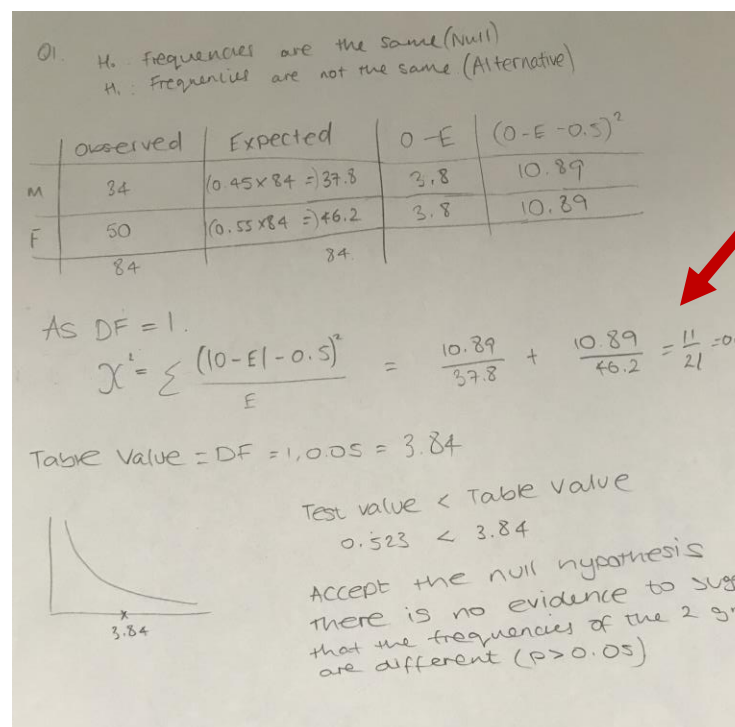 Q1. H₀ : Frequencies are the same (Null)
H₁ : Frequencies are not the same (Alternative)
Observed Expected O-E (O-E-0.5)²
M 34 (0.45 x 84 =) 37.8 3.8 10.89
F 50 (0.55 x 84 =) 46.2 3.8 10.89
84 84
As DF = 1.
X² = Σ (|O-E| - 0.5)² / E = 10.89 / 37.8 + 10.89 / 46.2 = 11 / 21 = 0.
Table Value = DF = 1, 0.05 = 3.84
Test value < Table value
0.523 < 3.84
3.84
Accept the null hypothesis
there is no evidence to sugg
that the frequencies of the 2 g
are different (p>0.05)